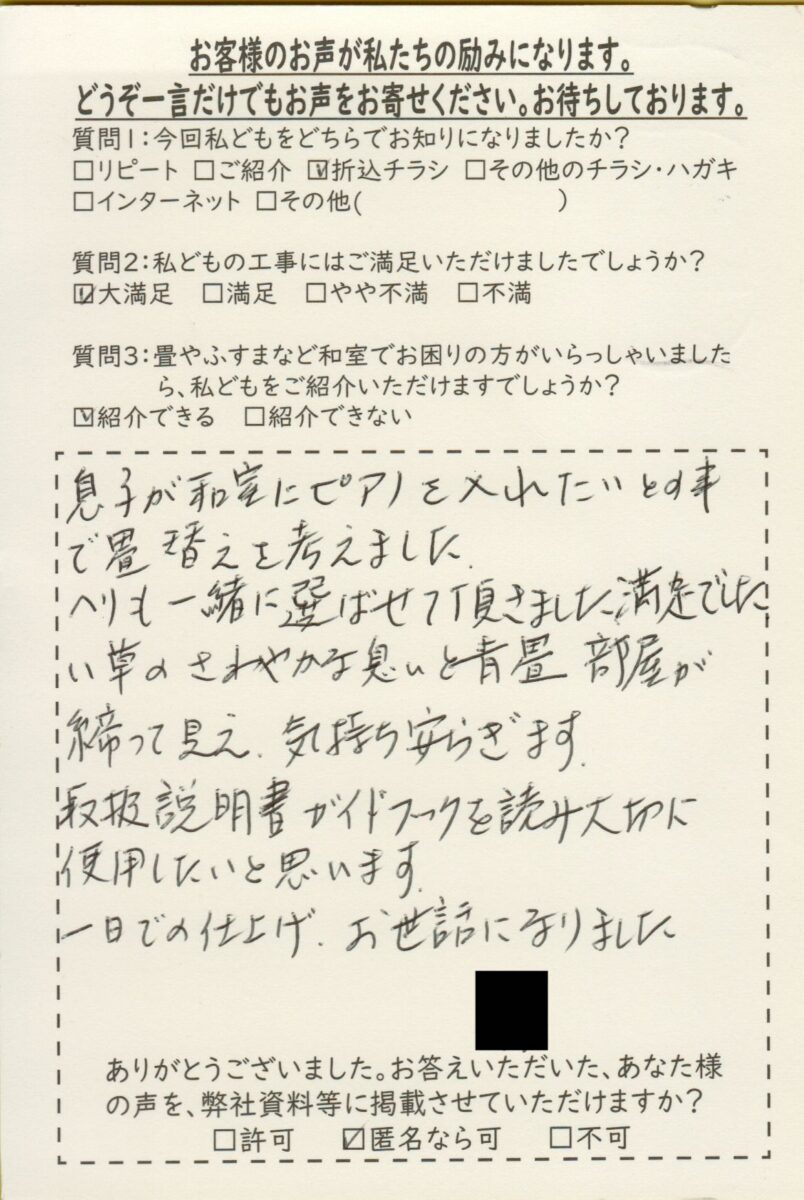 お客様のお声が私たちの励みになります。
どうぞ一言だけでもお声をお寄せください。お待ちしております。
質問1:今回私どもをどちらでお知りになりましたか?
□リピート □ご紹介 ☑折込チラシ □その他のチラシ・ハガキ
□インターネット □その他( )
質問2:私どもの工事にはご満足いただけましたでしょうか?
☑大満足 □満足 □やや不満 □不満
質問3:畳やふすまなど和室でお困りの方がいらっしゃいました
ら、私どもをご紹介いただけますでしょうか?
☑紹介できる □紹介できない
息子が和室にピアノを入れたいとの事
で畳替えを考えました.
ヘリも一緒に選ばせて頂きました.満足でした.
い草のさわやかな息いと青畳 部屋が
締って見え.気持ち安らぎます.
取扱説明書ガイドブックを読み大切に
使用したいと思います.
一日での仕上げ.お世話になりました
ありがとうございました。お答えいただいた、あなた様
の声を、弊社資料等に掲載させていただけますか?
□許可 ☑匿名なら可 □不可